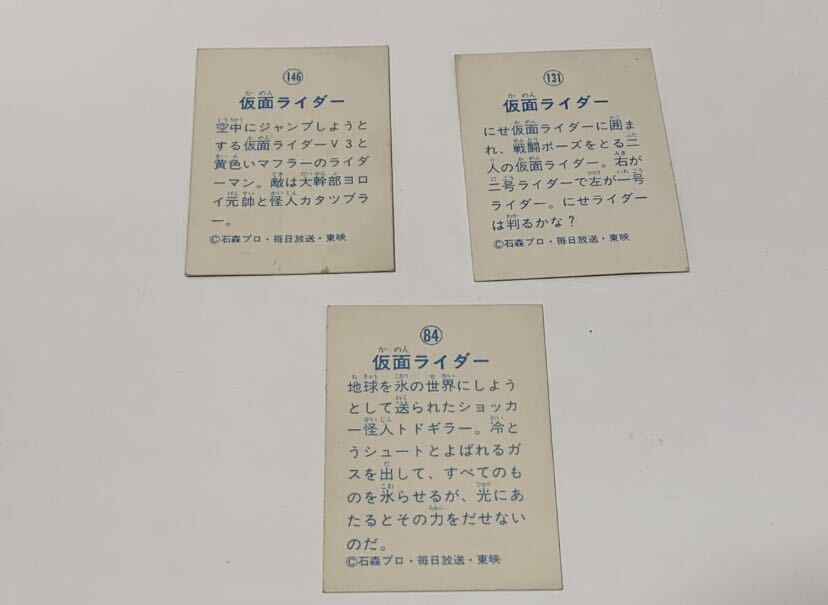 146
仮面ライダー
空中にジャンプしようと
する仮面ライダーV3と
黄色いマフラーのライダ
ーマン。敵は大幹部ヨロ
イ元帥と怪人カタツブラ
ー。
©石森プロ・毎日放送・東映
131
仮面ライダー
にせ仮面ライダーに囲ま
れ、戦闘ポーズをとる二
人の仮面ライダー。右が
二号ライダーで左が一号
ライダー。にせライダー
は判るかな？
©石森プロ・毎日放送・東映
84
仮面ライダー
地球を氷の世界にしよう
として送られたショッカ
ー怪人トドギラー。冷と
うシュートとよばれるガ
スを出して、すべてのも
のを氷らせるが、光にあ
たるとその力をだせない
のだ。
©石森プロ・毎日放送・東映